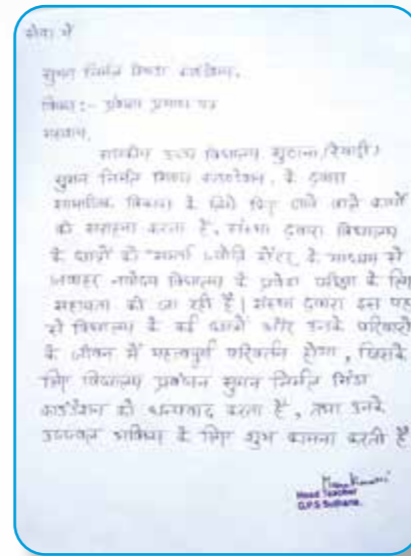 सेवा में
सुमन निर्मल मिण्डा फाउंडेशन,
विषय:- प्रशंसा पत्र
महोदय,
राजकीय उच्च विद्यालय सुठाना (रेवाड़ी)
सुमन निर्मल मिंडा फाउंडेशन, के द्वारा
सामाजिक विकास के लिये किए जाने वाले कार्यों
की सराहना करता है, संस्था द्वारा विद्यालय
के छात्रों को ज्योति सेंटर, के माध्यम से
जवाहर नवोदय विद्यालय के प्रवेश परीक्षा के लिए
सहायता की जा रही है। संस्था द्वारा इस पहल
से विद्यालय के कई छात्रों और उनके परिवारों
के जीवन में महत्वपूर्ण परिवर्तन होगा, जिसके
लिए विद्यालय प्रबंधन सुमन निर्मल मिंडा
फाउंडेशन को धन्यवाद करता है, तथा उनके
उज्ज्वल भविष्य के लिए शुभ कामना करती है
Head Teacher
G.P.S Suthana.